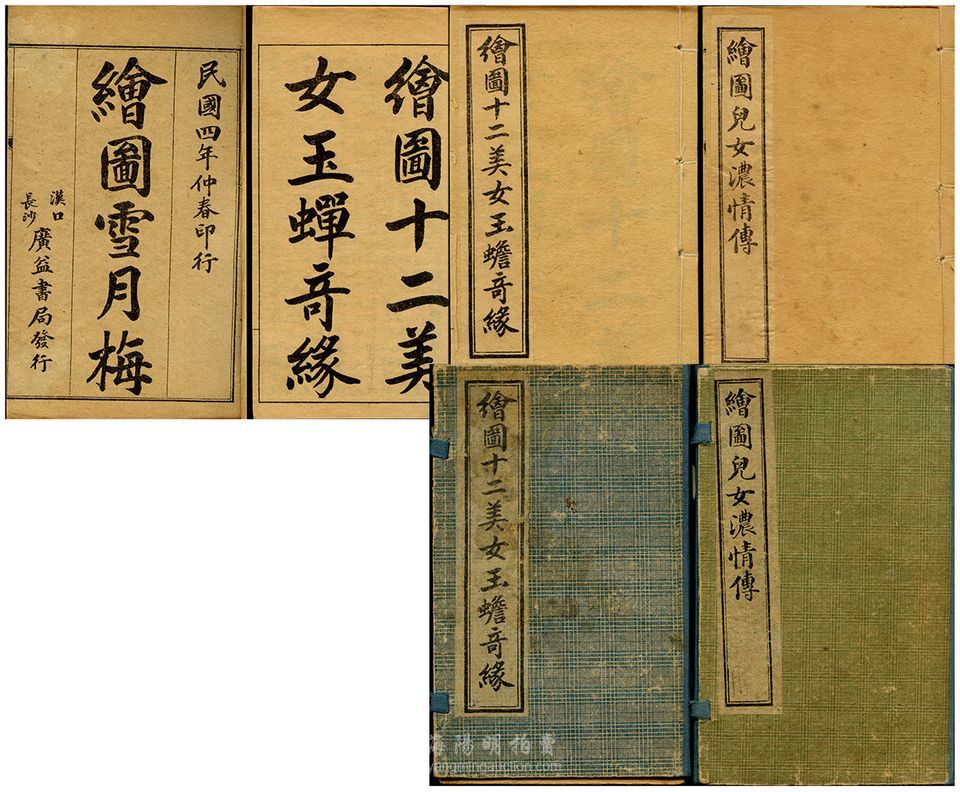 民國四年仲春印行
繪圖雪月梅
漢口
長沙
廣益書局發行
繪圖十二美
女玉蟬奇緣
繪圖十二美女玉蟾奇緣
繪圖兒女濃情傳
繪圖十二美女玉蟾奇緣
繪圖兒女濃情傳
陽明拍賣
yangmingauction.com